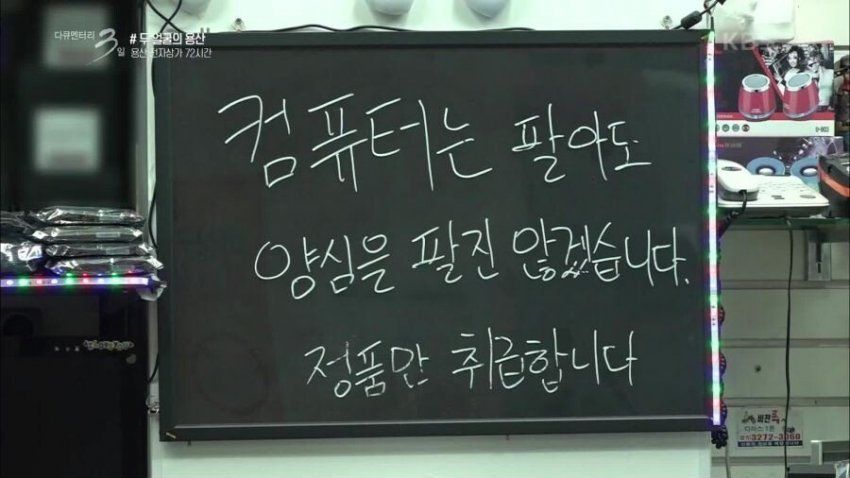 다큐멘터리 3일
# 두 얼굴의 용산
용산 전자상가 72시간
KBS
컴퓨터는 팔아도
양심을 팔진 않겠습니다.
정품만 취급합니다
비전
3272-3050